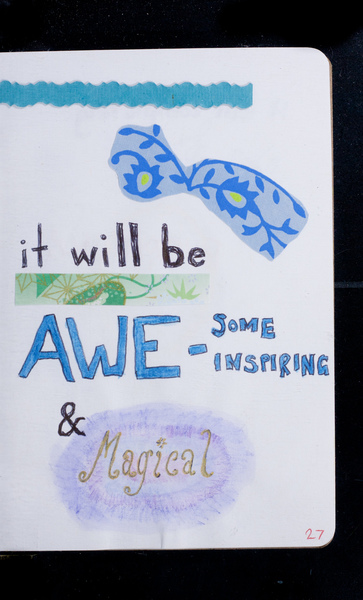 it will be
AWE - SOME
INSPIRING
&
Magical
27